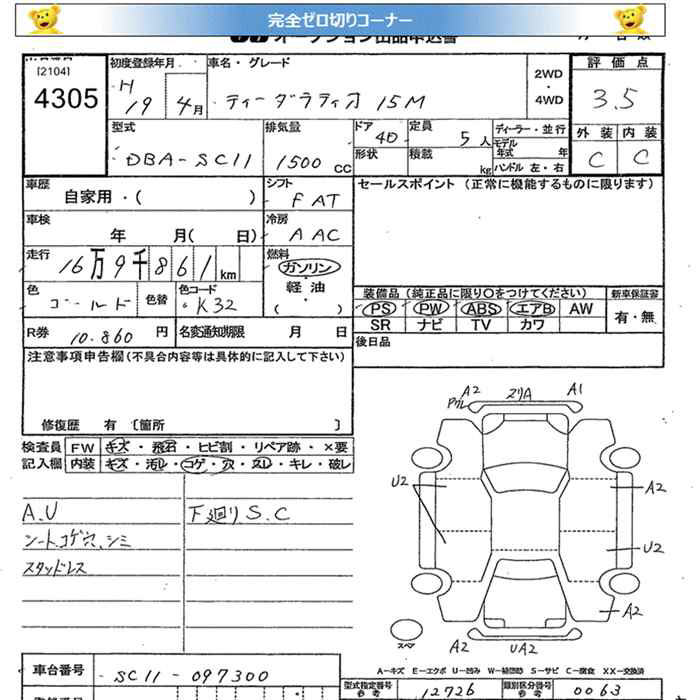 完全ゼロ切りコーナー
オークション出品申込書
[2104]
4305
初度登録年月 H 19 4月
車名・グレード ティーダラティオ 15M
2WD・4WD
評価点 3.5
型式 DBA-SC11
排気量 1500 CC
ドア 4D
定員 5人
ディーラー・並行
モデル年式 年
外装 内装
C C
形状
積載 kg
ハンドル 左・右
車歴 自家用・( )
シフト FAT
セールスポイント (正常に機能するものに限ります)
車検 年 月( 日)
冷房 AAC
走行 16万9千861km
燃料 ガソリン 軽油 ( ・ )
色 ゴールド
色替
色コード K32
装備品 (純正品に限り○をつけてください)
新車保証書
PS PW ABS エアB AW
有・無
SR ナビ TV カワ
R券 10.860 円
名変通知期限 月 日
後日品
注意事項申告欄(不具合内容等は具体的に記入して下さい)
修復歴 有 〔箇所 〕
検査員 FW キズ・飛石・ヒビ割・リペア跡・×要
記入欄 内装 キズ・汚レ・コゲ・穴・スレ・キレ・破レ
A.U
シートコゲ穴、シミ
スタッドレス
下廻りS.C
A2 ズリA A1
Pクレ
U2 A2
U2
A2
スペア A2 UA2
A-キズ E-エクボ U-凹み W-補修跡 S-サビ C-腐食 XX-交換済
車台番号 SC11-097300
型式指定番号 参考 12726
類別区分番号 参考 0063